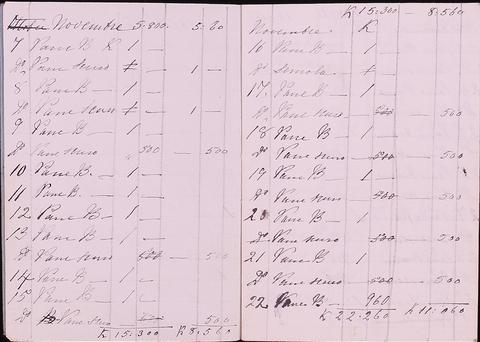 Novembre 5.800 5.60
7 Pane B K 1 —
Do Pane nero ‡ — 1 —
8 Pane B 1 —
Do Pane nero ‡ — 1 —
9 Pane B — 1 —
Do Pane nero „ 500 — 500
10 Pane B. — 1 —
11 Pane B. — 1 —
12 Pane B — 1 —
13 Pane B — 1 —
Do Pane nero 500 — 500
14 Pane B — 1 —
15 Pane B — 1 —
Do Pane nero 500
K 15.300 K 8.560
K 15.300 — 8.560
Novembre K
16 Pane B — 1
Do Semola — ‡
17 Pane B — 1
Do Pane nero — 500 — 500
18 Pane B — 1
Do Pane nero — 500 — 500
19 Pane B 1
Do Pane nero — 500 — 500
20 Pane B — 1
Do Pane nero 500 — 500
21 Pane B 1
Do Pane nero — 500 — 500
22 Pane B — 960
K 22.260 K 11.060